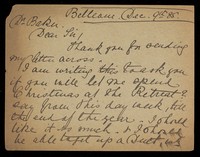 Bellevue, Dec. 9th 85
Dr. Baker.
Dear Sir;
Thank you for sending
my letter across.
I am writing this to ask you
if you will let me spend
Christmas at the Retreat
say from this day week, till
the end of the year. I should
like it so much. & I should
be able to get up a